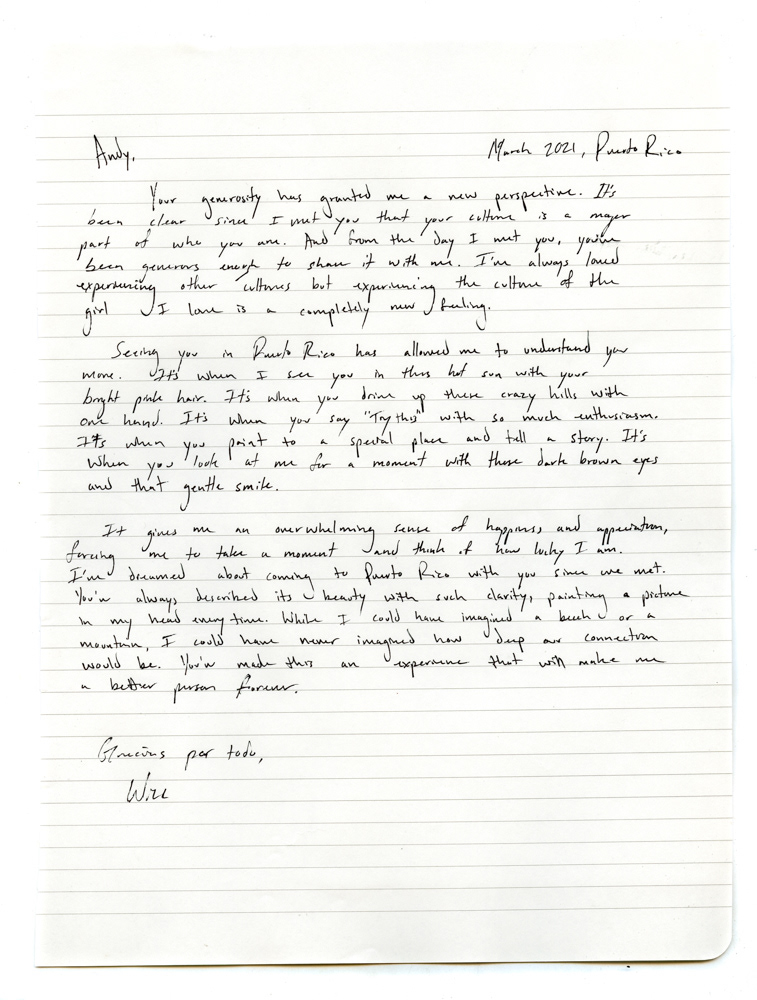 Andy, March 2021, Puerto Rico
Your generosity has granted me a new perspective. It's
been clear since I met you that your culture is a major
part of who you are. And from the day I met you, you've
been generous enough to share it with me. I've always loved
experiencing other cultures but experiencing the culture of the
girl I love is a completely new feeling.
Seeing you in Puerto Rico has allowed me to understand you
more. It's when I see you in this hot sun with your
bright pink hair. It's when you drive up these crazy hills with
one hand. It's when you say "Try this" with so much enthusiasm.
It's when you point to a special place and tell a story. It's
when you look at me for a moment with those dark brown eyes
and that gentle smile.
It gives me an overwhelming sense of happiness and appreciation,
forcing me to take a moment and think of how lucky I am.
I've dreamed about coming to Puerto Rico with you since we met.
You've always described its beauty with such clarity, painting a picture
in my head every time. While I could have imagined a beach or a
mountain, I could have never imagined how deep our connection
would be. You've made this an experience that will make me
a better person forever.
Gracias por todo,
Will